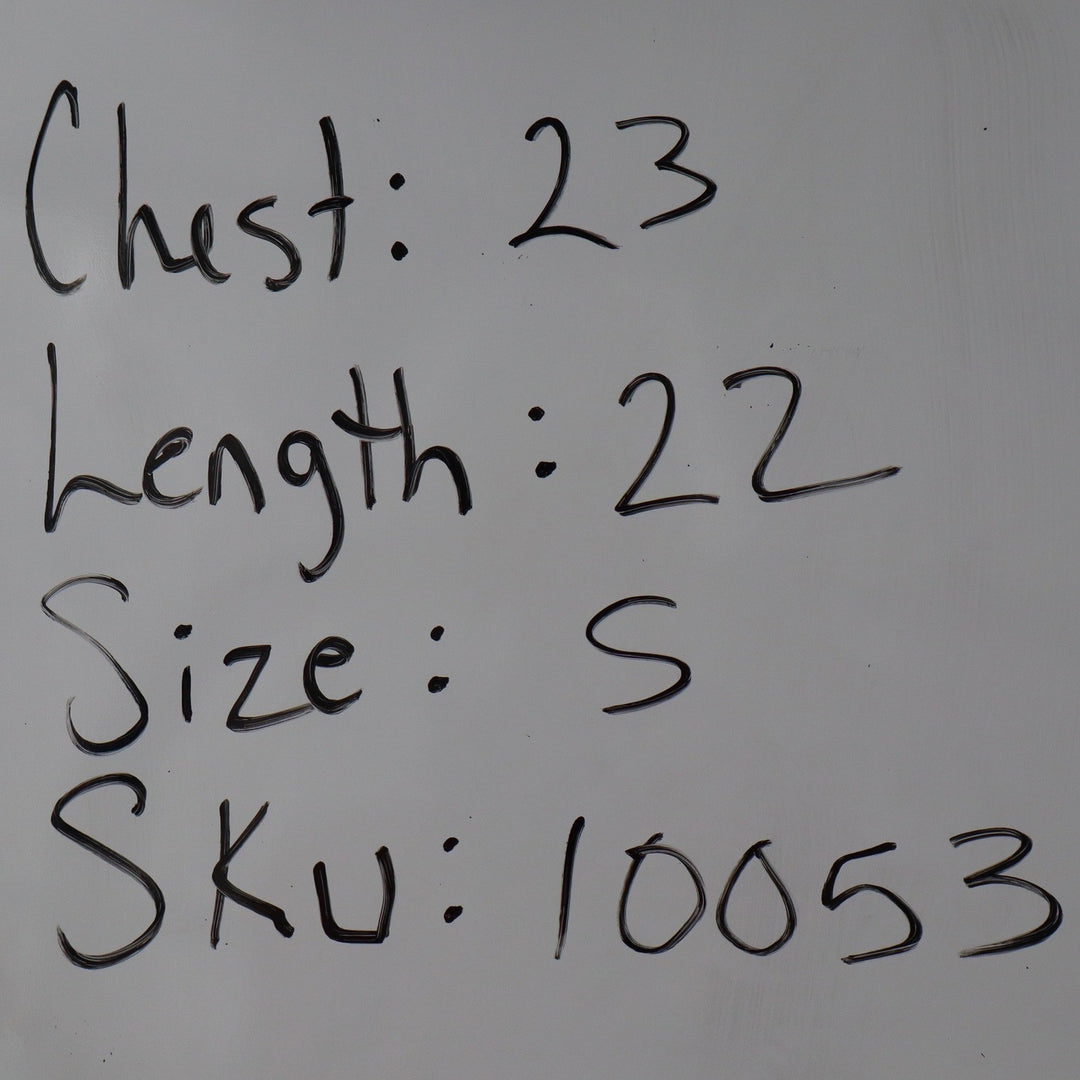 Chest: 23
Length: 22
Size: S
SKU: 10053